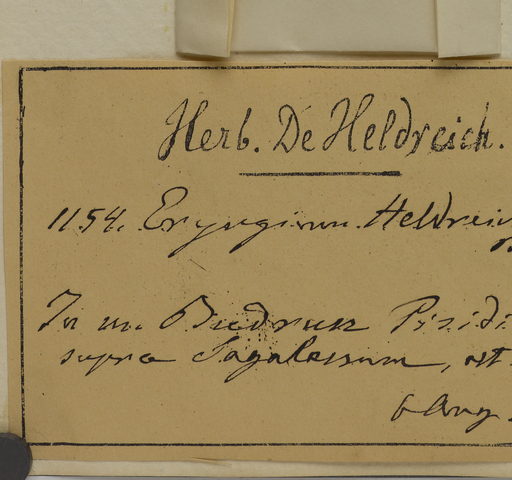 Herb. De Heldreich.
1154. Eryngium Heldrei
In m. Budrun Pisidi
supra Sagalassum, alt
6 Aug.